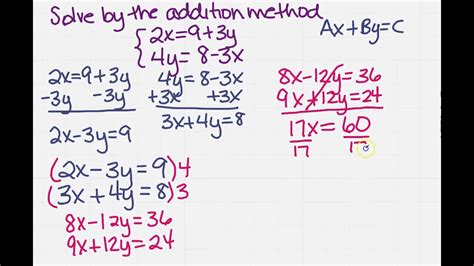 Solve by the addition method
Ax+By=C
{2x=9+3y
4y=8-3x
2x=9+3y
-3y -3y
2x-3y=9
4y=8-3x
+3x +3x
3x+4y=8
(2x-3y=9)4
(3x+4y=8)3
8x-12y=36
9x+12y=24
8x-12y=36
9x+12y=24
17x=60
17 17